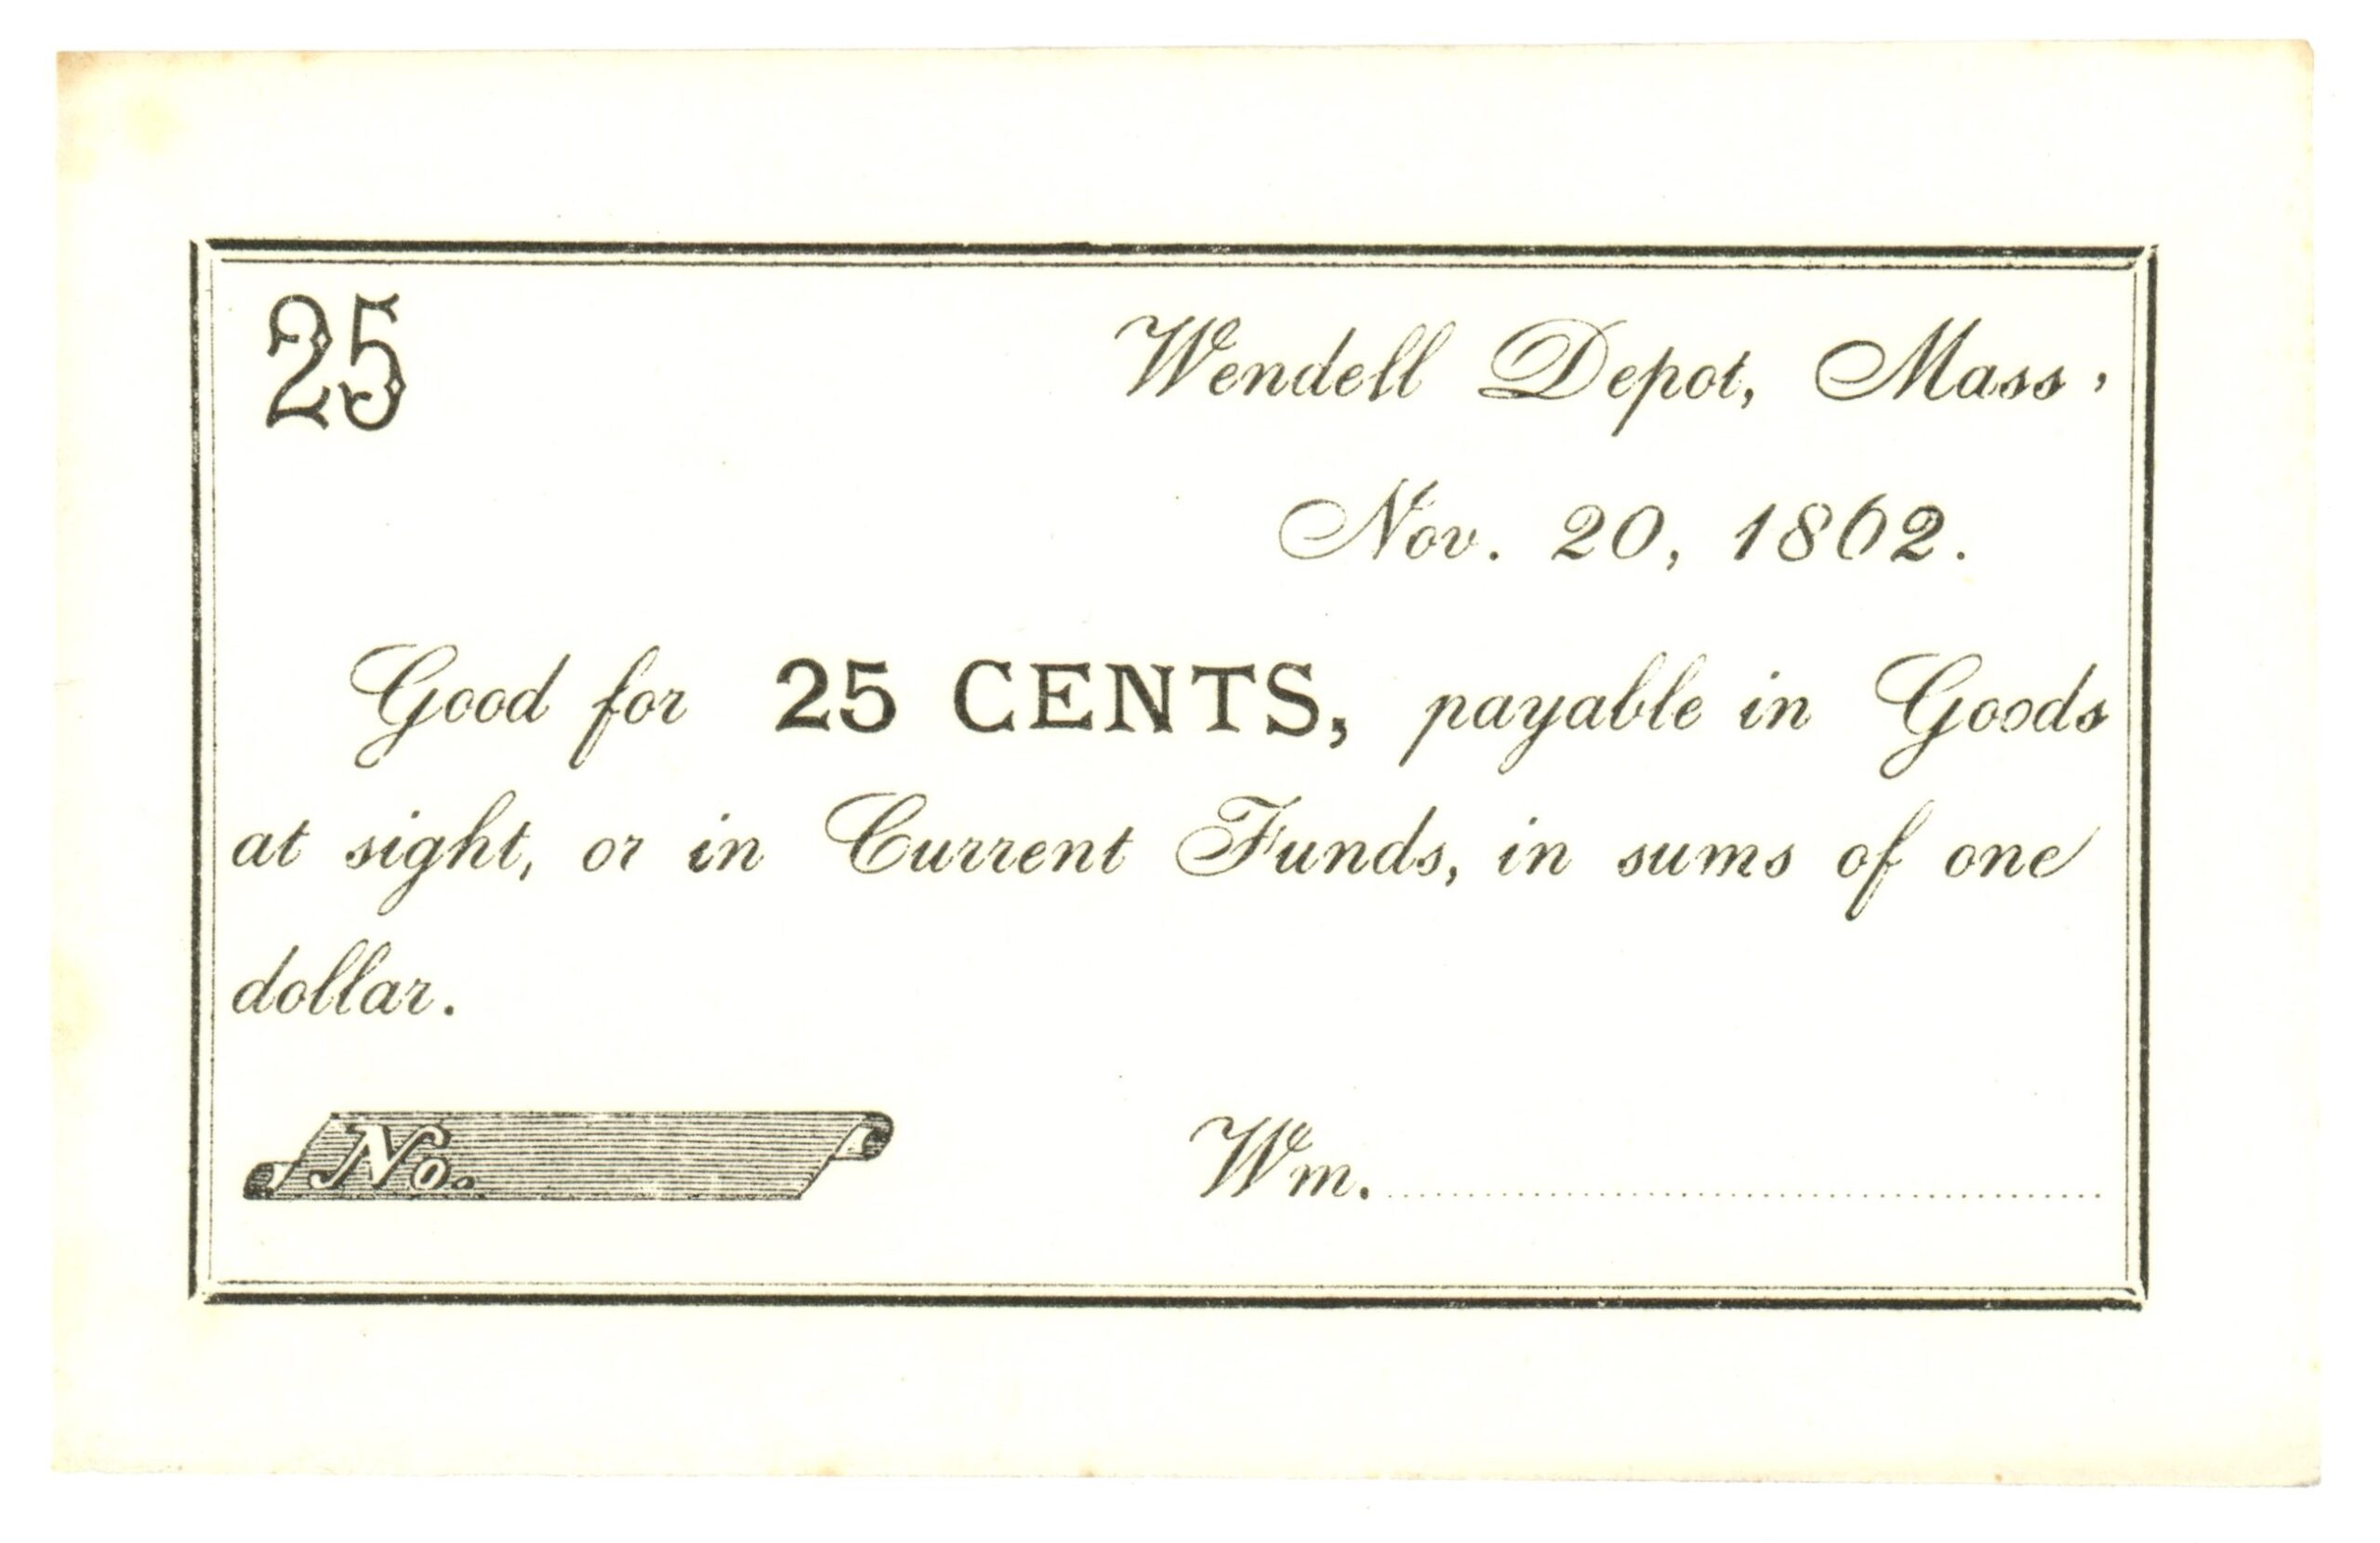 25
Wendell Depot, Mass,
Nov. 20, 1862.
Good for 25 CENTS, payable in Goods
at sight, or in Current Funds, in sums of one
dollar.
No.
Wm.